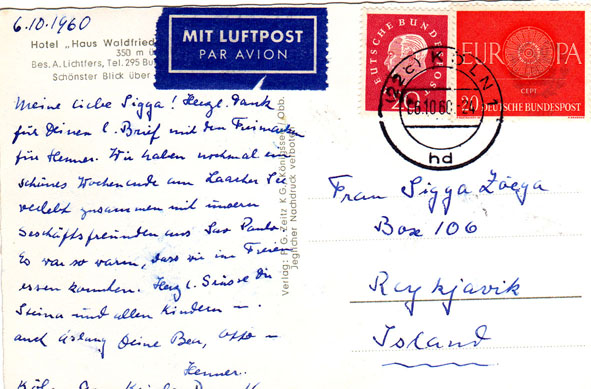 6.10.1960
Hotel „Haus Waldfried
350 m ü
Bes. A. Lichtfers, Tel. 295 Bu
Schönster Blick über
MIT LUFTPOST
PAR AVION
Meine liebe Sigga! Herzl. Dank
für Deinen l. Brief mit den Freimarken
für Henner. Wir haben nochmal ein
schönes Wochenende am Laacher See
verlebt zusammen mit unseren
Geschäftsfreunden aus Sao Paulo.
Es war so warm, dass wir im Freien
essen konnten. Herzl. Grüsse Dir
Steina und allen Kindern –
auch Áslaug Deine Bea, Otto –
Henner.
Verlag: P. G. Zeitz K G., Königssee / Obb.
Jeglicher Nachdruck verboten
DEUTSCHE BUNDESPOST
20
EUROPA
CEPT
20 DEUTSCHE BUNDESPOST
(22c) KÖLN 1
10.60
hd
Frau Sigga Zöega
Box 106
Reykjavik
Island